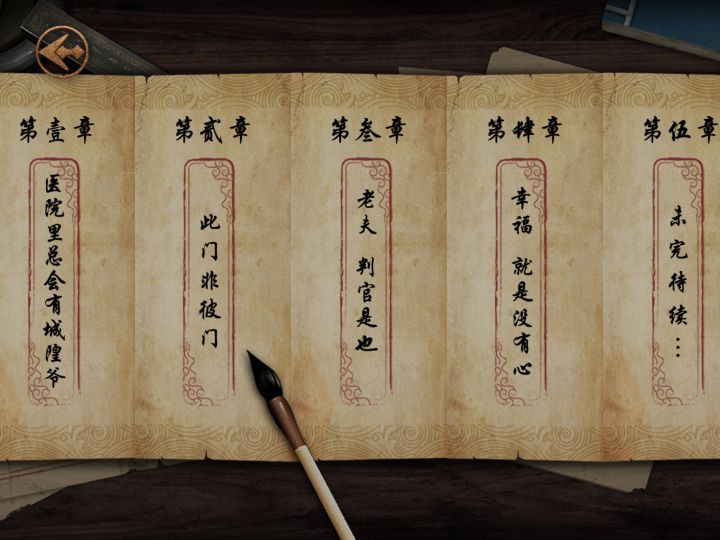 第壹章
医院里总会有城隍爷
第贰章
此门非彼门
第叁章
老夫 判官是也
第肆章
幸福 就是没有心
第伍章
未完待续…